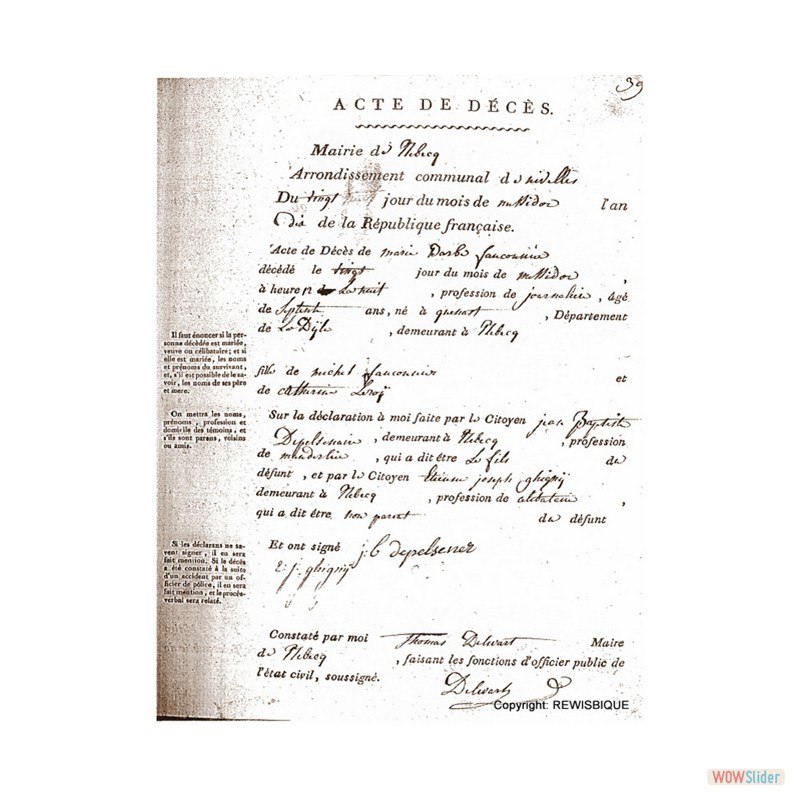 39
ACTE DE DÉCÈS.
Mairie de Rebecq
Arrondissement communal de nivelles
Du vingt jour du mois de messidor l'an
Dix de la République française.
Acte de Décès de marie Barbe fauconnier
décédé le vingt jour du mois de messidor ,
à heure 12 de La nuit , profession de journalière , âgé
de Septante ans, né à quenast , Département
de La Dyle , demeurant à Rebecq
fille de michel fauconnier et
de catherine Leroÿ
Sur la déclaration à moi faite par le Citoyen jean Baptiste
Depelsenaire , demeurant à Rebecq , profession
de , qui a dit être Le fils du
défunt , et par le Citoyen Etienne joseph ghigny
demeurant à Rebecq , profession de ,
qui a dit être non parent du défunt
Et ont signé j: b depelsener
E: j: ghigny
Constaté par moi Thomas Delwart Maire
de Rebecq , faisant les fonctions d'officier public de
l'état civil, soussigné.
Delwart
Il faut énoncer si la per-
sonne décédée est mariée,
veuve ou célibataire; et si
elle est mariée, les noms
et prénoms du survivant,
et, s'il est possible de le sa-
voir, les noms de ses père
et mere.
On mettra les noms,
prénoms, profession et
domicile des témoins, et
s'ils sont parens, voisins
ou amis.
Si les déclarans ne sa-
vent signer, il en sera
fait mention. Si le décès
a été constaté à la suite
d'un accident par un of-
ficier de police, il en sera
fait mention, et le procès-
verbal sera relaté.
Copyright: REWISBIQUE
WOWSlider